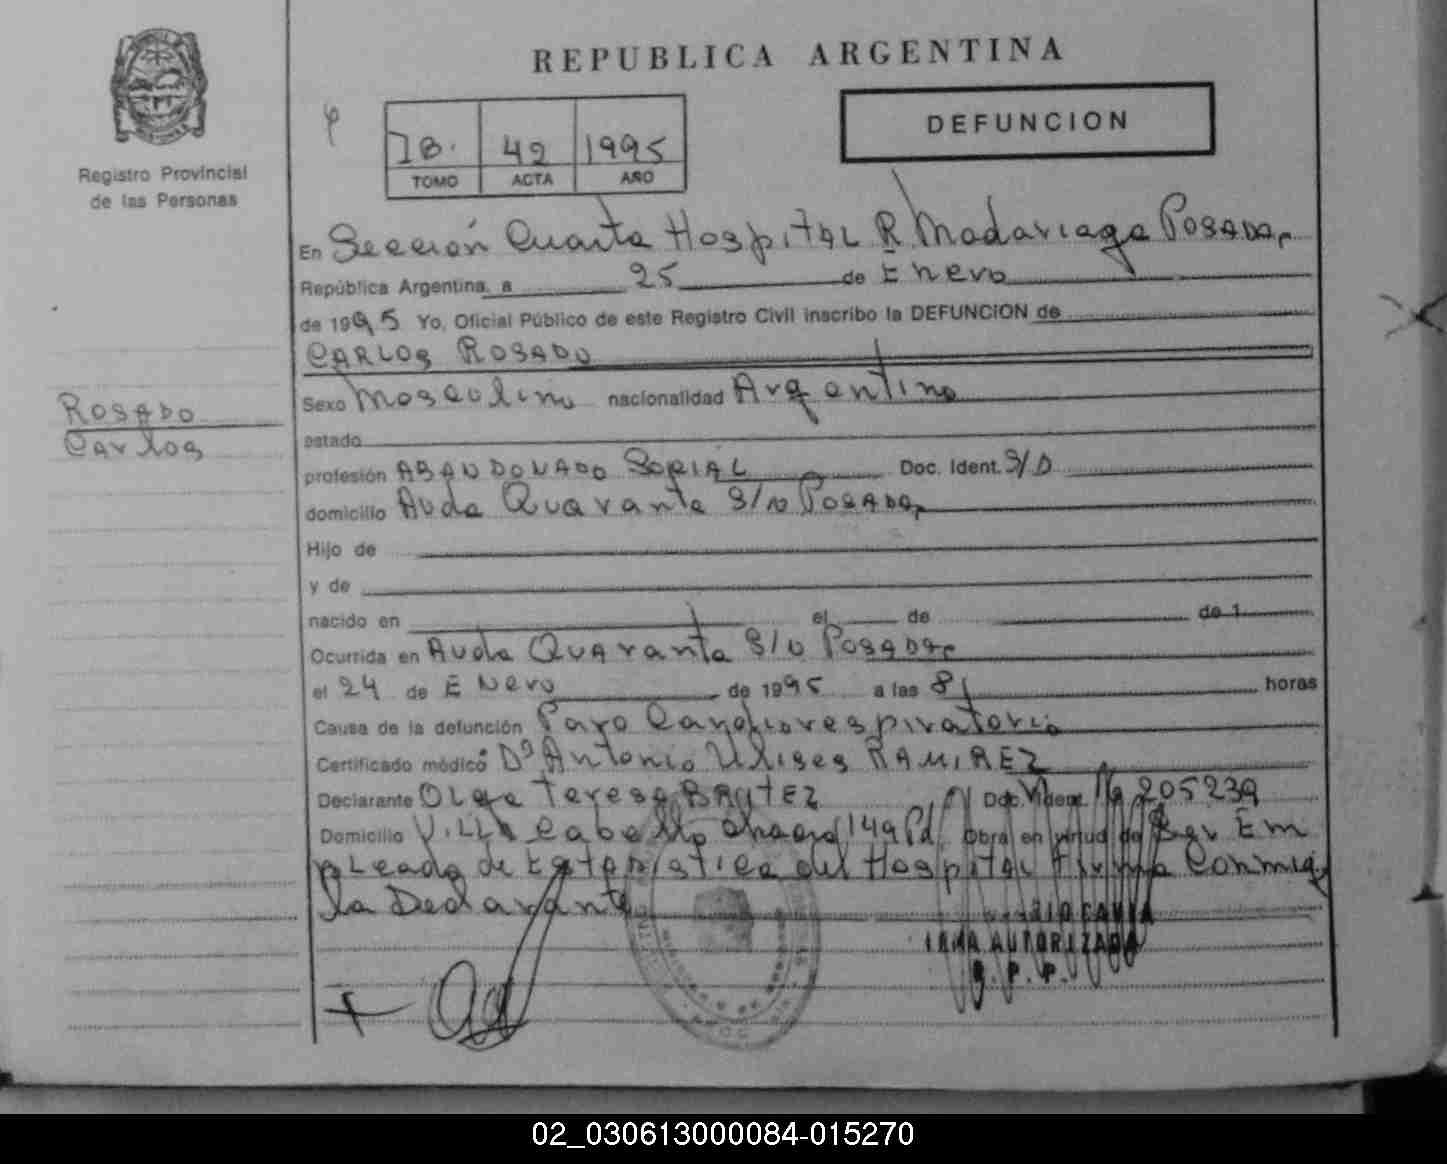 REPUBLICA ARGENTINA
DEFUNCION
Registro Provincial
de las Personas
42 1995
TOMO ACTA AÑO
En Sección Cuarta Hospital R Madariaga Posadas
República Argentina, a 25 de Enero
de 1995 Yo, Oficial Público de este Registro Civil inscribo la DEFUNCION de
CARLOS ROSADO
ROSADO
Carlos
Sexo Masculino nacionalidad Argentina
estado
profesión ABANDONADO SOCIAL Doc. Ident. S/D
domicilio Avda Quaranta S/N POSADAS
Hijo de
y de
nacido en el de de 1
Ocurrida en Avda Quaranta S/N POSADAS
el 24 de Enero de 1995 a las 8 horas
Causa de la defunción Paro Cardiorespiratorio
Certificado médico Dº Antonio Ulises RAMIREZ
Declarante Olga Teresa Doc. Ident. 205239
Domicilio Villa Cabello chacra 149 Pd. obra en virtud de Ser Em
pleada de Estadistica del Hospital Firma Conmigo
la Declarante
AUTORIZADA
R. P. P.
02_030613000084-015270